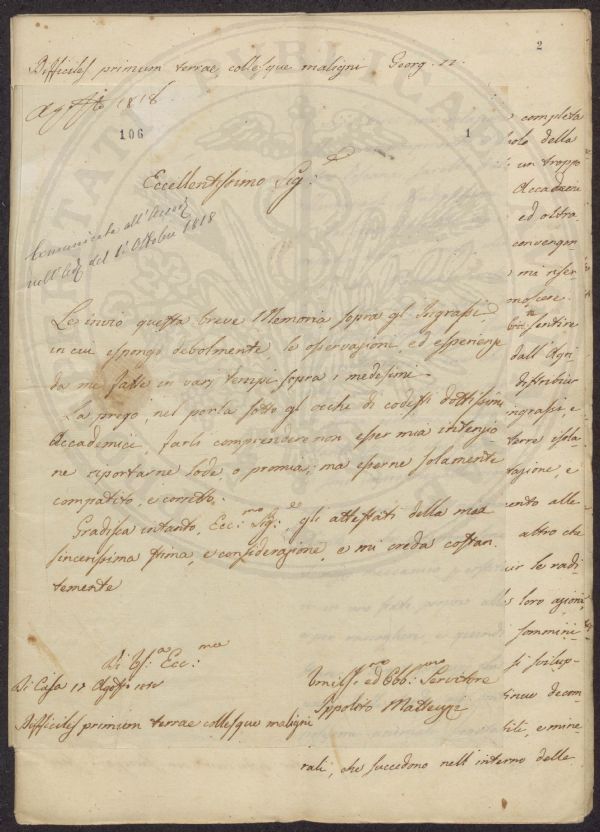 2
Difficiles primum terrae, collesque maligni Georg. II.
Agosto 1818
106
1
Eccellentissimo Sig.r
Comunicata all'Accad.
nell' del 1.° Ottobre 1818
Le invio questa breve Memoria sopra gl' Ingrassi,
in cui espongo debolmente, le osservazioni, ed esperienze
da me fatte in varj tempi sopra i medesimi.
La prego, nel porla sotto gl' occhi di codesti dottissimi
Accademici, farli comprendere non esser mia intenzio
ne riportarne lode, o premia; ma esserne solamente
compatito, e corretto.
Gradisca intanto, Ecc.mo Sig.re gli attestati della mia
sincerissima stima, e considerazione, e mi creda costan
temente
Di V.S.a Ecc.ma
Di Casa 17 Agosto 1818
Umiliss.mo ed Obb.mo Servitore
Ippolito Matteuzzi
Difficiles primum terrae collesque maligni
completa
della
un troppo
Accademi
ed oltra
convengon
mi riser
noscere.
sentire
dall' Agri
distribuir
ingrassi, e
terre isola
tazione, e
mento alle
altro che
ir le radi
loro azioni,
sommini
si svilup
tinua decom
tili, e mine
rali, che succedono nell' interno delle